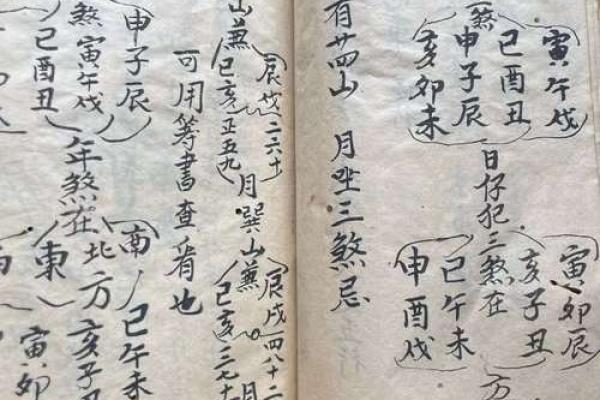 煞
寅午戌
巳酉丑
申子辰
亥卯未
日仔犯三煞在
寅卯辰
亥子丑
巳午未
申酉戌
方
有廿四山 月坐三煞忌
山兼
辰戌二六十
巳亥正五九
月巽山兼
辰戌四八十二
巳亥三七十
月
可用籌書查看也
煞
申子辰
寅午戌
巳酉丑
年煞在
南
北
東
方
巳午未
亥子
寅卯